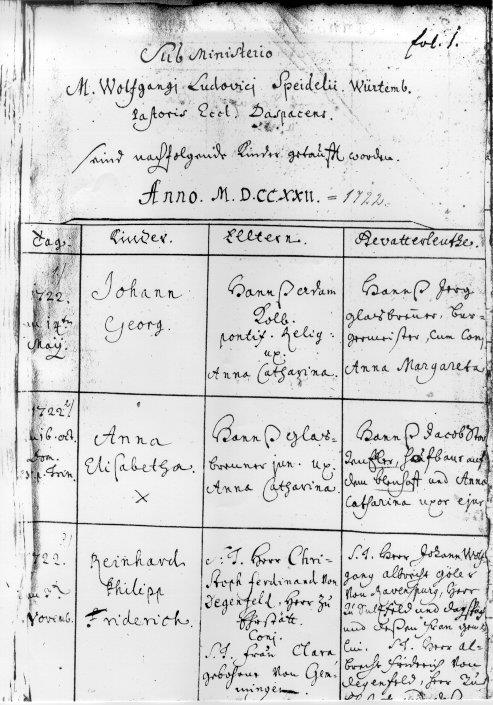 fol. 1.
Sub Ministerio
M. Wolfgangi Ludovici Speidelii Würtemb.
Pastoris Eccl. Daspacens.
seind nachfolgende Kinder getaufft worden.
Anno. M.D.CCXXII. = 1722.
Tag.
Kinder.
Eltern.
Gevatterleuthe.
1/
1722.
14ten
Maij.
Johann
Georg.
Hannß Adam
Kolb.
pontif. Relig:
ux.
Anna Catharina.
Hannß Jerg
glassbrenner, bur-
germeister, cum Conj.
Anna Margareta
2/
1722
16. oct.
Dom.
Trin.
Anna
Elisabetha.
x
Hannß Glas-
brenner jun. ux.
Anna Catharina.
Hannß Jacob
hoffbaur auf
dem und Anna
Catharina uxor ejus
3/
1722.
Novemb.
Reinhard
Philipp
Friderich.
S. T. Herr Chri-
stoph Ferdinand von
Degenfeld, Herr zu
Conj.
S. T. frau Clara,
gebohrne von Gem-
mingen
S. T. Herr Johann Wolf-
gang albrecht Göler
von Ravenspurg, Herr
zu Sultzfeld und
und
S. T. Herr al-
brecht Friderich von
Degenfeld, Herr zu